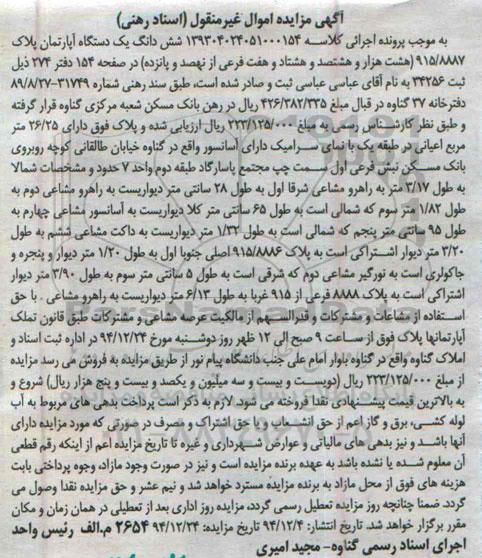 آگهی مزایده اموال غیرمنقول (اسناد رهنی)
به موجب پرونده اجرائی کلاسه ۱۳۹۳۰۴۰۲۴۰۵۱۰۰۰۱۵۴ شش دانگ یک دستگاه آپارتمان پلاک
۹۱۵/۸۸۸۷ (هشت هزار و هشتصد و هشتاد و هفت فرعی از نهصد و پانزده) در صفحه ۱۵۴ دفتر ۲۷۴ ذیل
ثبت ۳۴۲۵۶ به نام آقای عباسی عباسی ثبت و صادر شده است، طبق سند رهنی شماره ۳۱۷۴۹-۸۹/۸/۲۷
دفترخانه ۳۷ گناوه در قبال مبلغ ۴۲۶/۳۸۲/۳۳۵ ریال در رهن بانک مسکن شعبه مرکزی گناوه قرار گرفته
و طبق نظر کارشناس رسمی به مبلغ ۲۲۳/۱۲۵/۰۰۰ ریال ارزیابی شده و پلاک فوق دارای ۲۶/۲۵ متر
مربع اعیانی در طبقه یک با نمای سرامیک دارای آسانسور واقع در گناوه خیابان طالقانی کوچه روبروی
بانک مسکن نبش فرعی اول سمت چپ مجتمع پاسارگاد طبقه دوم واحد ۷ حدود و مشخصات شمالا
به طول ۳/۱۷ متر به راهرو مشاعی شرقا اول به طول ۲۸ سانتی متر دیواریست به راهرو مشاعی دوم به
طول ۱/۸۲ متر سوم که شمالی است به طول ۶۵ سانتی متر کلا دیواریست به آسانسور مشاعی چهارم به
طول ۹۵ سانتی متر پنجم که شمالی است به طول ۱/۳۲ متر دیواریست به داکت مشاعی ششم به طول
۳/۲۰ متر دیوار اشتراکی است به پلاک ۹۱۵/۸۸۸۶ اصلی جنوبا اول به طول ۱/۲۰ متر دیوار و پنجره و
جاکولری است به نورگیر مشاعی دوم که شرقی است به طول ۵ سانتی متر سوم به طول ۳/۹۰ متر دیوار
اشتراکی است به پلاک ۸۸۸۸ فرعی از ۹۱۵ غربا به طول ۶/۱۳ متر دیواریست به راهرو مشاعی . با حق
استفاده از مشاعات و مشترکات و قدرالسهم از مالکیت عرصه مشاعی و مشترکات طبق قانون تملک
آپارتمانها پلاک فوق از ساعت ۹ صبح الی ۱۲ ظهر روز دوشنبه مورخ ۹۴/۱۲/۲۴ در اداره ثبت اسناد و
املاک گناوه واقع در گناوه بلوار امام علی جنب دانشگاه پیام نور از طریق مزایده به فروش می رسد مزایده
از مبلغ ۲۲۳/۱۲۵/۰۰۰ ریال (دویست و بیست و سه میلیون و یکصد و بیست و پنج هزار ریال) شروع و
به بالاترین قیمت پیشنهادی نقدا فروخته می شود. لازم به ذکر است پرداخت بدهی های مربوط به آب
لوله کشی، برق و گاز اعم از حق انشعاب و یا حق اشتراک و مصرف در صورتی که مورد مزایده دارای
آنها باشد و نیز بدهی های مالیاتی و عوارض شهرداری و غیره تا تاریخ مزایده اعم از اینکه رقم قطعی
آن معلوم شده یا نشده باشد به عهده برنده مزایده است و نیز در صورت وجود مازاد، وجوه پرداختی بابت
هزینه های فوق از محل مازاد به برنده مزایده مسترد خواهد شد و نیم عشر و حق مزایده نقدا وصول می
گردد. ضمنا چنانچه روز مزایده تعطیل رسمی گردد، مزایده روز اداری بعد از تعطیلی در همان زمان و مکان
مقرر برگزار خواهد شد. تاریخ انتشار: ۹۴/۱۲/۴ تاریخ مزایده: ۹۴/۱۲/۲۴ ۲۶۵۴ م.الف رئیس واحد
اجرای اسناد رسمی گناوه- مجید امیری